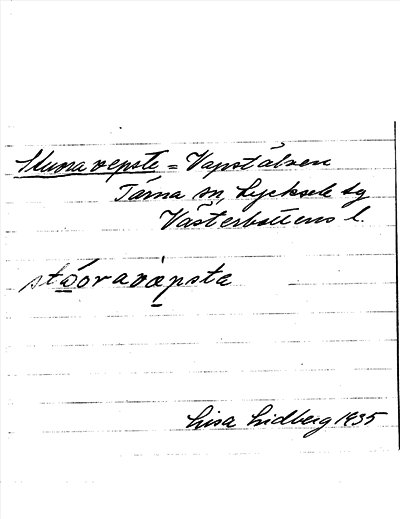 Stuora vepste = Vapstälven
Tärna sn, Lycksele lg
Västerbottens l.
stå̱oravḁpsta
Lisa Lidberg 1935